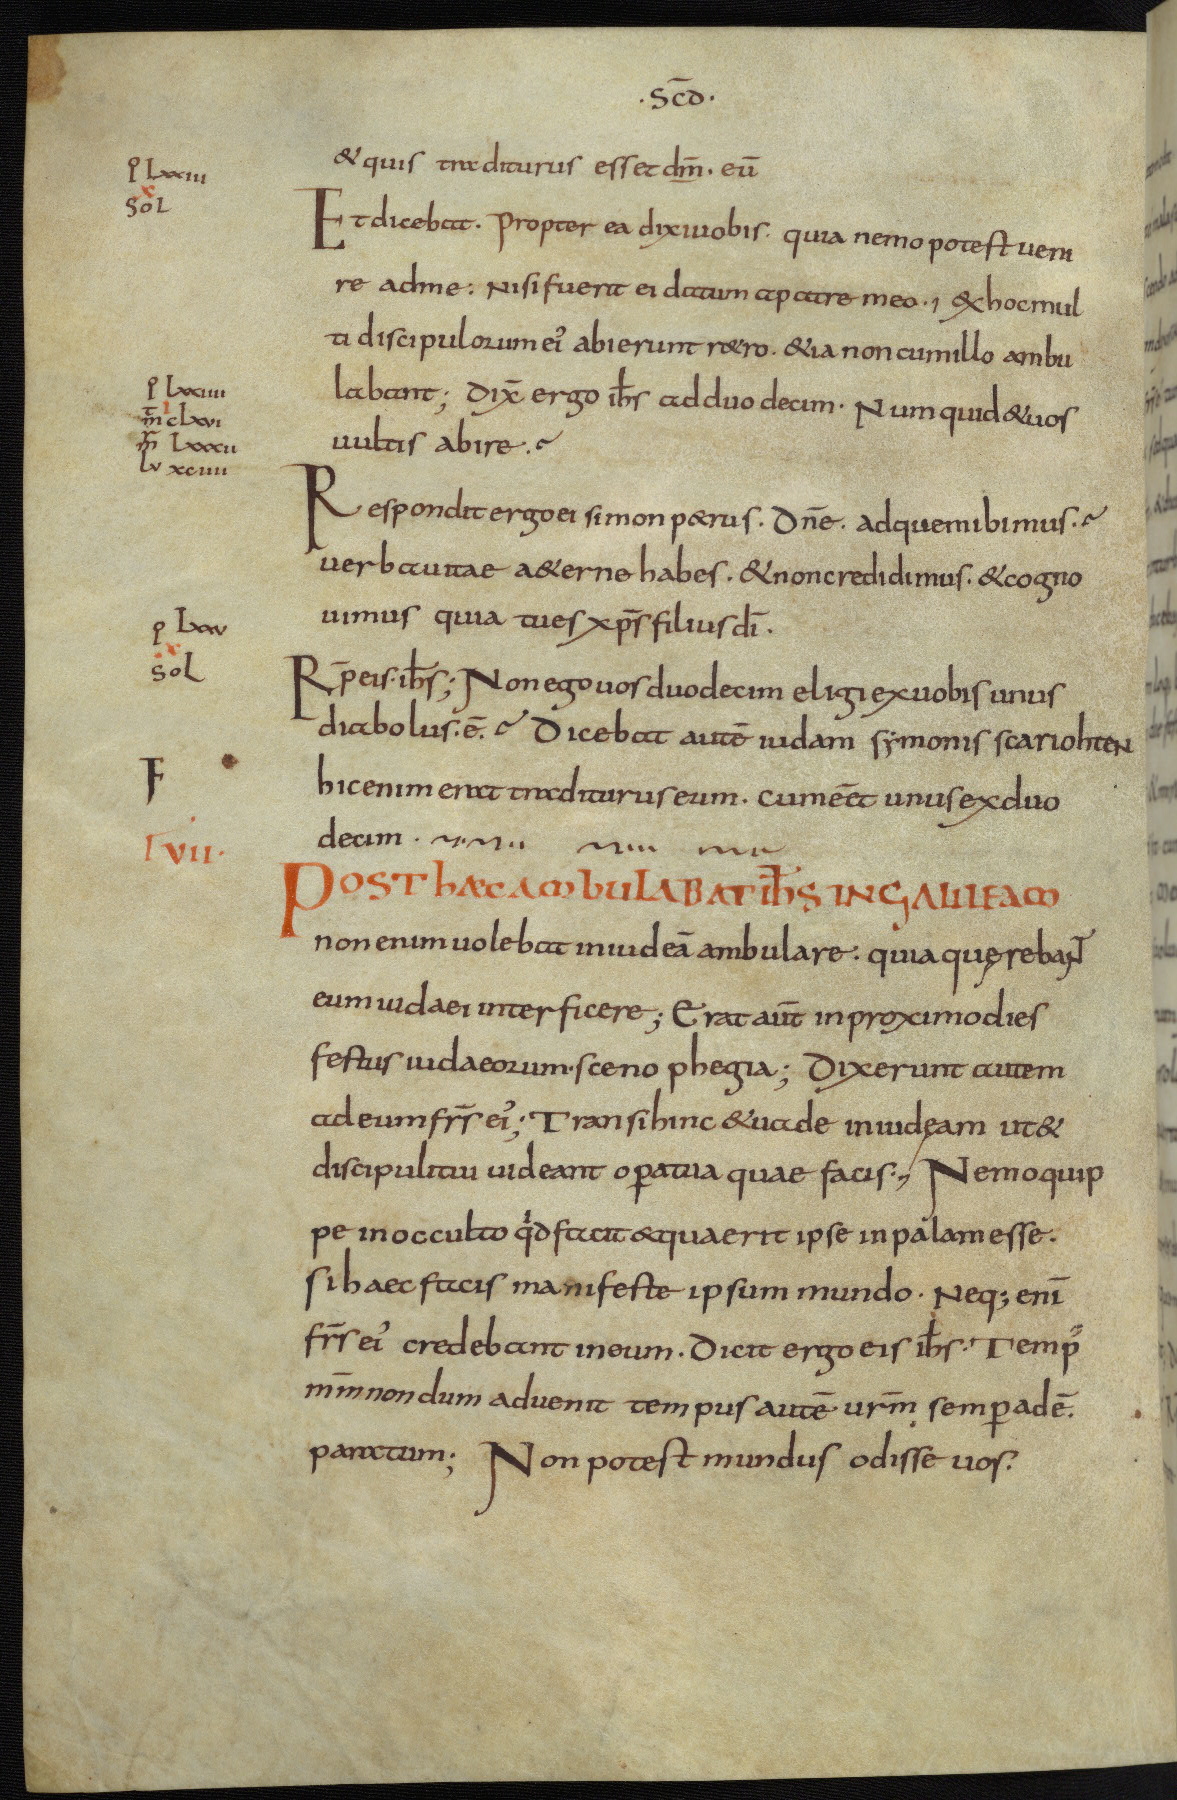 ·Sc̄d·
& quis traditurus esset dm̄. eū
ꝑ Lxxiii
x
Sol
Et dicebat. Propter ea dixi uobis. quia nemo potest ueni
re ad me: Nisi fuerit ei datum a patre meo., Ex hoc mul
ti discipulorum ei' abierunt r&ro. & ia non cum illo ambu
ꝑ Lxxiiii
i
m̄ cLxvi
m̄ Lxxxii
Lv xciiii
labant; Dix̄ ergo ih̄s ad duodecim. Numquid & uos
uultis abire.
Respondit ergo ei simon p&rus. Dn̄e. ad quem ibimus.
uerba uitae a&erne habes. & non credidimus. & cogno
uimus quia tu es xp̄s filius dī.
ꝑ Lxxv
x
Sol
Rp̄ eis. ih̄s; Non ego uos duodecim eligi ex uobis unus
diabolus. ē. Dicebat autē iudam symonis scariohten
F
hic enim erat traditurus eum. cum eēt unus ex duo
decim.
Γ VII·
Post haec ambulabat ih̄s in galileam
non enim uolebat in iudeā ambulare: quia quęreban̄t
eum iudaei interficere; Erat aūt in proximo dies
festus iudaeorum. sceno phegia; Dixerunt autem
ad eum frs̄ ei'; Transi hinc & uade in iudeam ut &
discipuli tui uideant oꝑa tua quae facis., Nemo quip
pe in occulto qd facit & quaerit ipse in palam esse.
si haec facis manifeste ipsum mundo. Neq; enī
frs̄ ei' credebant in eum. Dicit ergo eis ih̄s. Temp'
mm̄ nondum aduenit tempus autē urm̄ semꝑ adē.
paratum; Non potest mundus odisse uos.